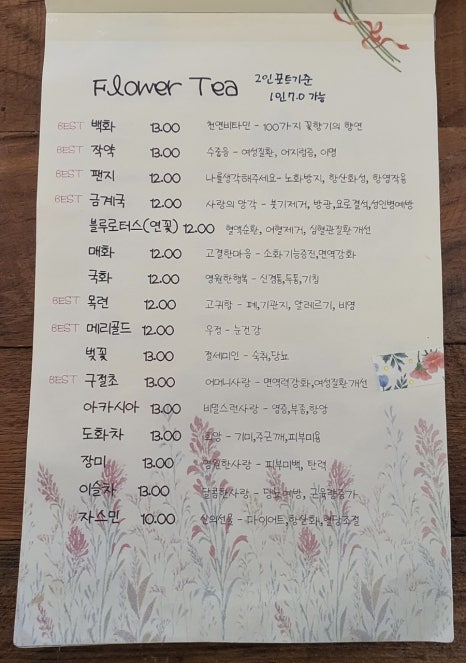 Flower Tea 2인 포트기준
1인 7.0 가능
BEST 백화 13.00 천연비타민 - 100가지 꽃향기의 향연
BEST 작약 13.00 수줍음 - 여성질환, 어지럼증, 이명
BEST 팬지 12.00 나를생각해주세요- 노화방지, 항산화성, 항염작용
BEST 금계국 12.00 사랑의 망각 - 붓기제거, 방광,요로결석,성인병예방
블루로터스(연꽃) 12.00 혈액순환, 어혈제거, 심혈관질환 개선
매화 12.00 고결한마음 - 소화기능증진,면역강화
국화 12.00 영원한행복 - 신경통,두통,기침
BEST 목련 12.00 고귀함 - 폐,기관지, 알레르기, 비염
BEST 메리골드 12.00 우정 - 눈건강
벚꽃 13.00 절세미인 - 숙취,당뇨
BEST 구절초 13.00 어머니사랑 - 면역력강화,여성질환 개선
아카시아 13.00 비밀스런사랑 - 염증,부종,항암
도화차 13.00 희망 - 기미,주근깨,피부미용
장미 13.00 영원한사랑 - 피부미백, 탄력
이슬차 13.00 달콤한사랑 - 당뇨예방, 근육량증가
자스민 10.00 신의선물 - 다이어트,항산화,혈당조절